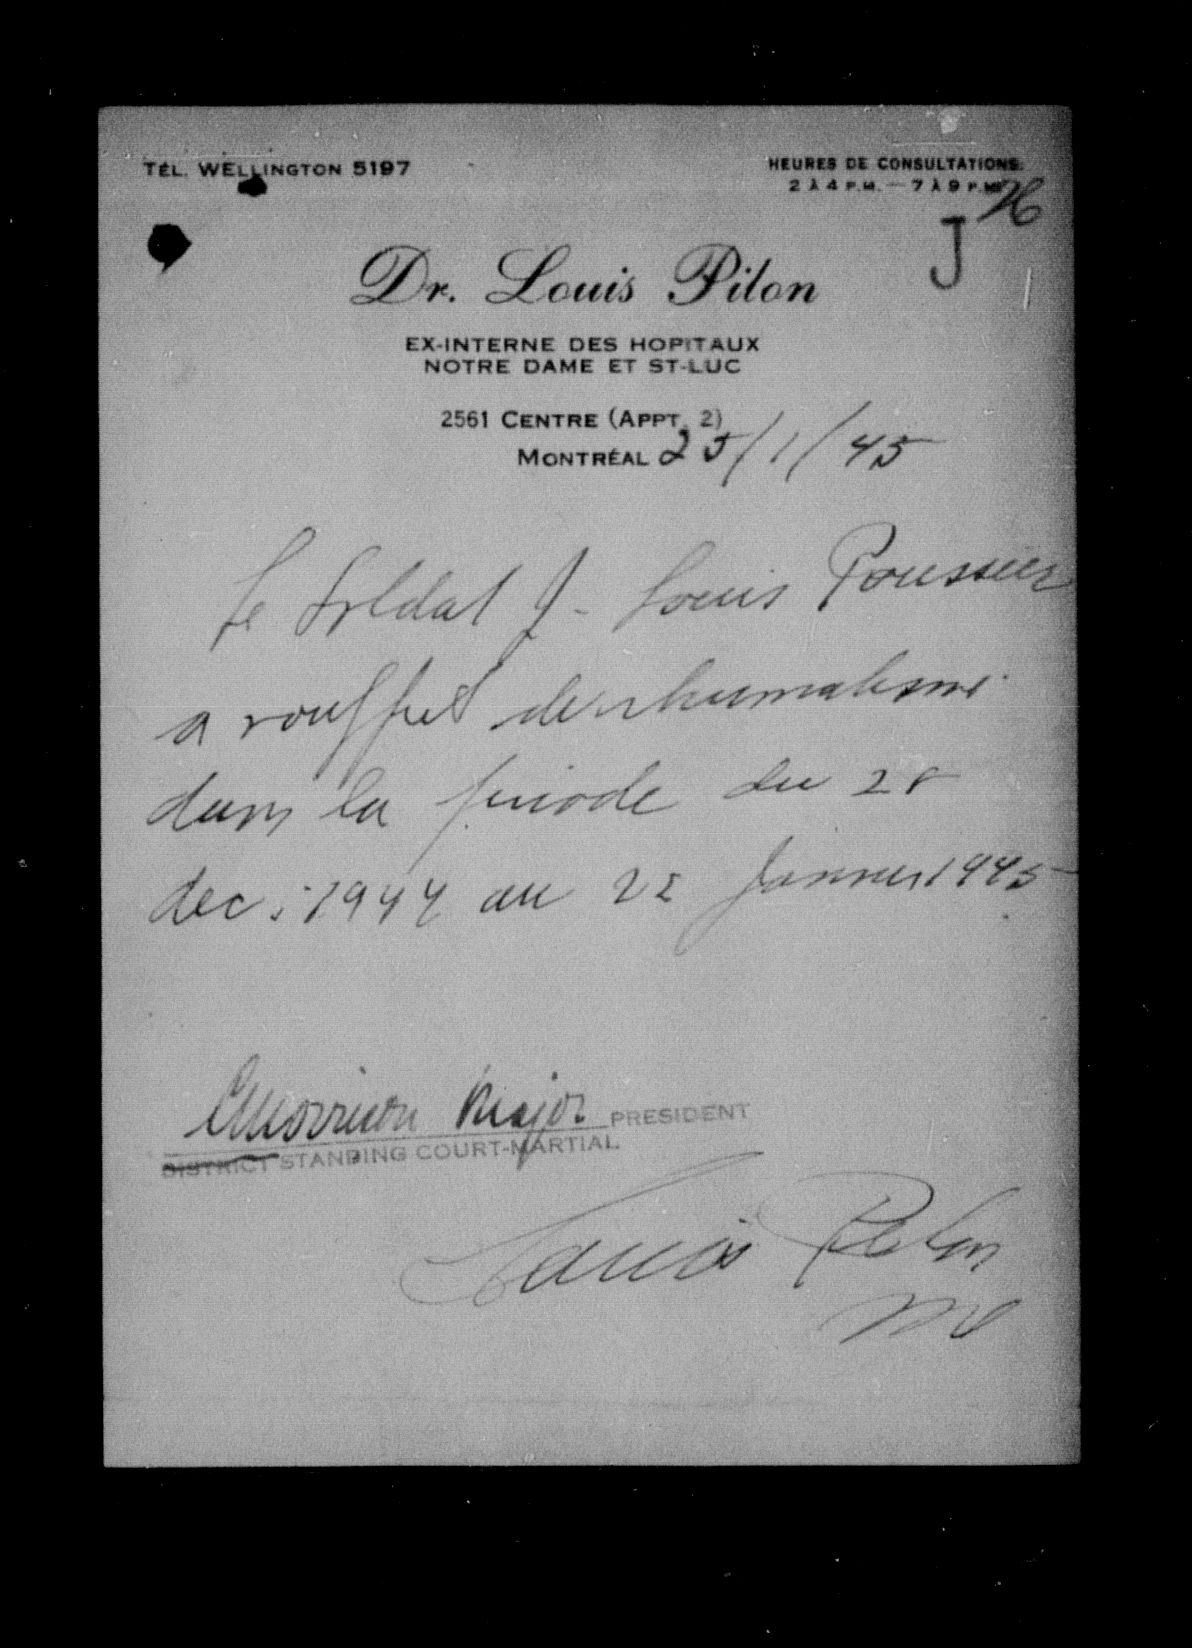 TÉL. WELLINGTON 5197
HEURES DE CONSULTATIONS:
2 À 4 P.M. — 7 À 9 P.M.
26
J
Dr. Louis Pilon
EX-INTERNE DES HOPITAUX
NOTRE DAME ET ST-LUC
2561 CENTRE (APPT. 2)
MONTRÉAL 25/1/45
Le Soldat J - Louis
a souffert de rhumatisme
dans la période du 28
dec: 1944 au 25 Janvier 1945
Morrison Major PRESIDENT
DISTRICT STANDING COURT-MARTIAL
Louis Pilon
MD